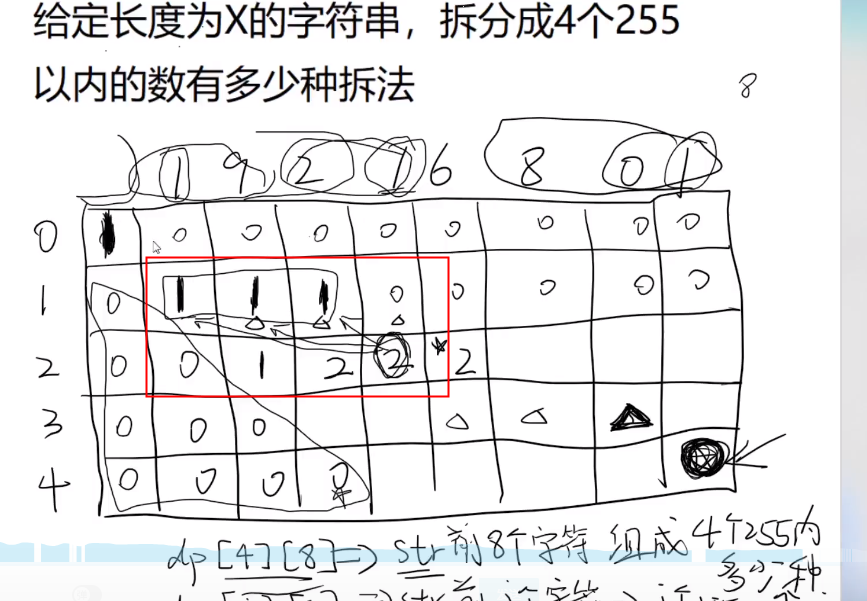 给定长度为X的字符串，拆分成4个255
以内的数有多少种拆法
8
1 9 2 1 6 8 0 1
0 1 0 0 0 0 0 0 0 0
1 0 1 1 1 0 0 0 0 0
2 0 0 1 2 2 2
3 0 0 0
4 0 0 0 0
dp[4][8]=>str前8个字符 组成4个255内
多少种